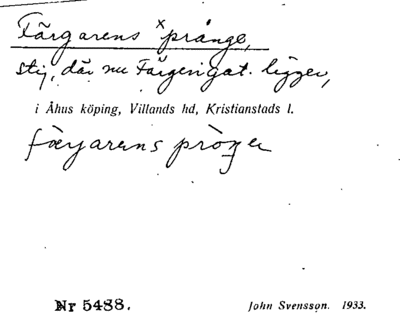 Färgarens ˣprånge,
stig, där nu Färgerigat. ligger,
i Åhus köping, Villands hd, Kristianstads l.
færgarens
Nr 5488. John Svensson. 1933.